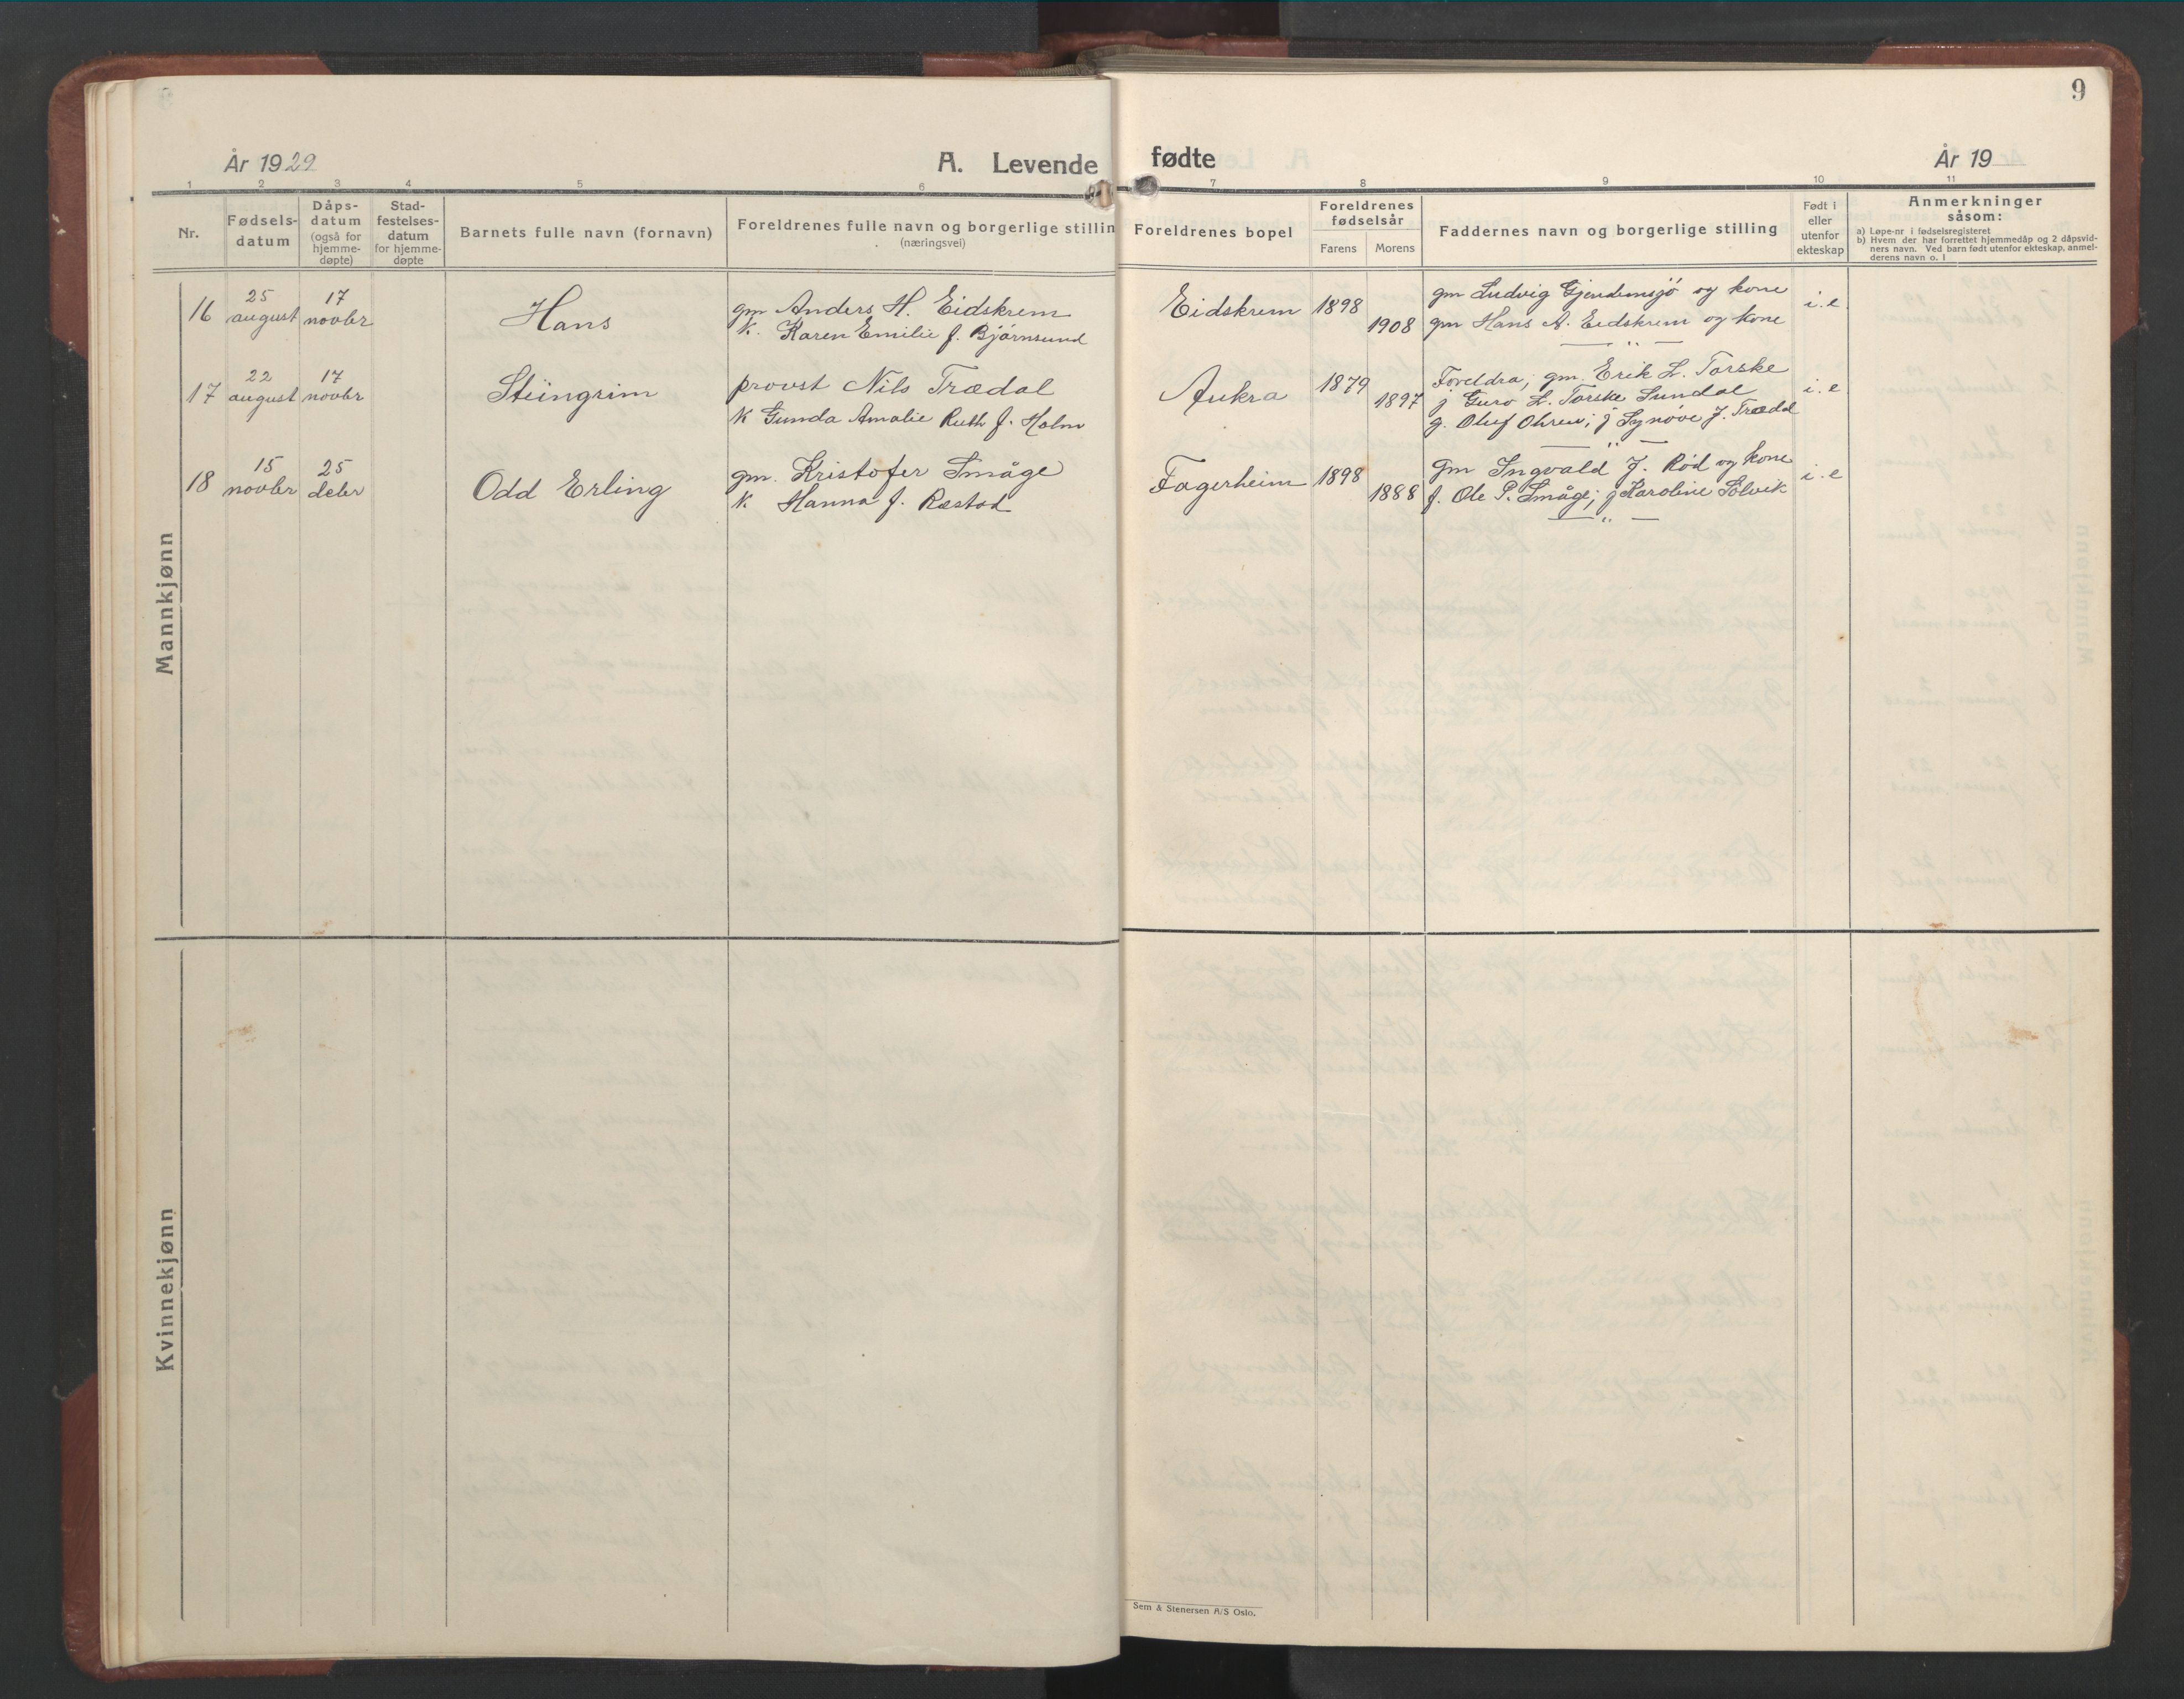 9
År 1929
A. Levende fødte
År 19
1 2 3 4 5 6 7 8 9 10 11
Nr.
Fødsels-
datum
Dåps-
datum
(også for
hjemme-
døpte)
Stad-
festelses-
datum
for hjemme-
døpte
Barnets fulle navn (fornavn)
Foreldrenes fulle navn og borgerlige stillin
(næringsvei)
Foreldrenes bopel
Foreldrenes
fødselsår
Farens Morens
Faddernes navn og borgerlige stilling
Født i
eller
utenfor
ekteskap
Anmerkninger
såsom:
a) Løpe-nr i fødselsregisteret
b) Hvem der har forrettet hjemmedåp og 2 dåpsvid-
ners navn. Ved barn født utenfor ekteskap, anmel-
derens navn o. l
Mannkjønn
16 25 august 17 novbr Hans
gm Anders H. Eidskrem
K. Karen Emilie f. Bjørnsund
Eidskrem 1898 1908
gm Ludvig Gjendemsjø og kone
gm Hans A. Eidskrem og kone
— " —
i. e
17 22 august 17 novbr Steingrim
provst Nils Trædal
K Gunda Amalie Ruth f. Holm
Aukra 1879 1897
Foreldra; gm. Erik L. Torske
j Guro L. Torske Sundal
g. Oluf Ohren; j Synøve J. Trædal
— " —
i. e
18 15 novbr 25 debr Odd Erling
gm. Kristofer Småge
K. Hanna f. Rastad
Fagerheim 1898 1888
gm Ingvald J. Rød og kone
f. Ole P. Småge; j Karoline Solvik
— " —
i. e
Kvinnekjønn
Sem & Stenersen A/S Oslo.